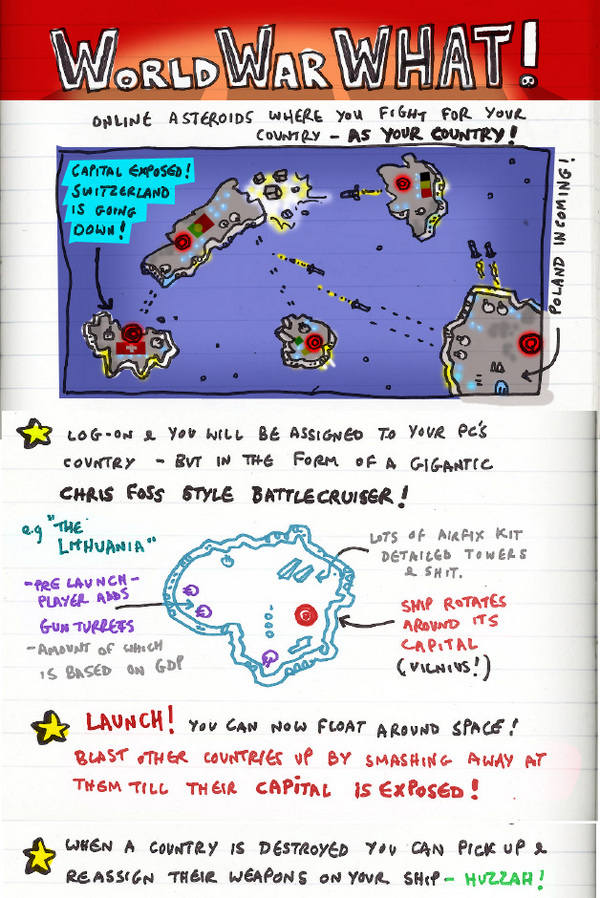 WORLD WAR WHAT!
ONLINE ASTEROIDS WHERE YOU FIGHT FOR YOUR
COUNTRY - AS YOUR COUNTRY!
CAPITAL EXPOSED!
SWITZERLAND
IS GOING
DOWN!
POLAND INCOMING!
LOG-ON & YOU WILL BE ASSIGNED TO YOUR PC'S
COUNTRY - BUT IN THE FORM OF A GIGANTIC
CHRIS FOSS STYLE BATTLECRUISER!
e.g "THE
LITHUANIA"
-PRE LAUNCH-
PLAYER ADDS
GUN TURRETS
- AMOUNT OF WHICH
IS BASED ON GDP
LOTS OF AIRFIX KIT
DETAILED TOWERS
& SHIT.
C
SHIP ROTATES
AROUND ITS
CAPITAL
(VILNIUS!)
LAUNCH! YOU CAN NOW FLOAT AROUND SPACE!
BLAST OTHER COUNTRIES UP BY SMASHING AWAY AT
THEM TILL THEIR CAPITAL IS EXPOSED!
WHEN A COUNTRY IS DESTROYED YOU CAN PICK UP &
REASSIGN THEIR WEAPONS ON YOUR SHIP - HUZZAH!